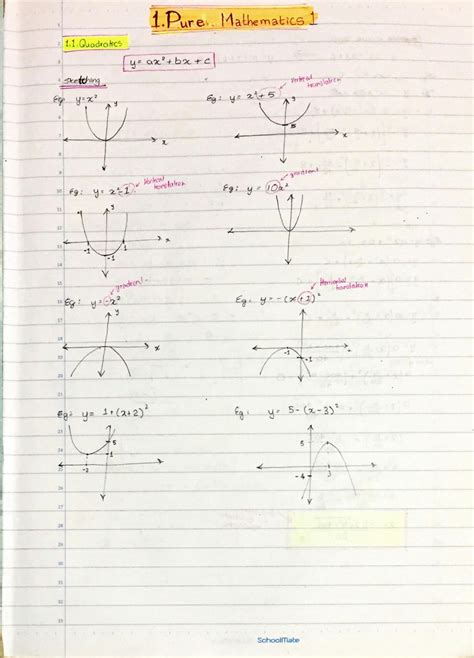 1. Pure Mathematics 1
1.1. Quadratics
y = ax² + bx + c
Sketching
Eg: y = x²
y
x
Eg: y = x² + 5
vertical translation
y
5
x
Eg: y = x² - 1
Vertical translation
y
-1 1
-1
x
Eg: y = 10x²
gradient
Eg: y = -x²
gradient
y
x
Eg: y = -(x+1)²
Horizontal translation
-1
-1
Eg: y = 1 + (x+2)²
5
1
-2
Eg: y = 5 - (x-3)²
5
3
-4
SchoolMate